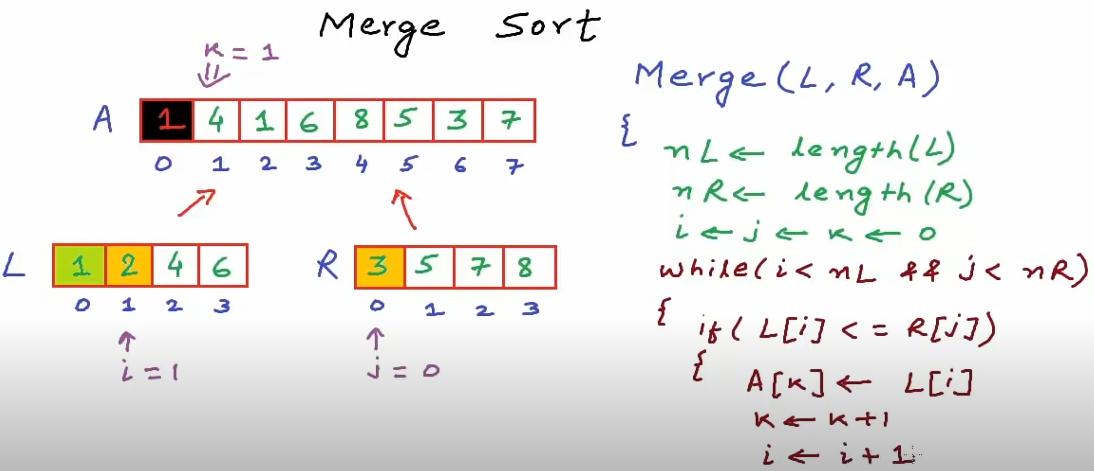 Merge Sort
k = 1
A 1 4 1 6 8 5 3 7
0 1 2 3 4 5 6 7
L 1 2 4 6
0 1 2 3
i = 1
R 3 5 7 8
0 1 2 3
j = 0
Merge(L, R, A)
{
nL ← length(L)
nR ← length(R)
i ← j ← k ← 0
while(i < nL && j < nR)
{ if( L[i] <= R[j])
{ A[k] ← L[i]
k ← k+1
i ← i + 1